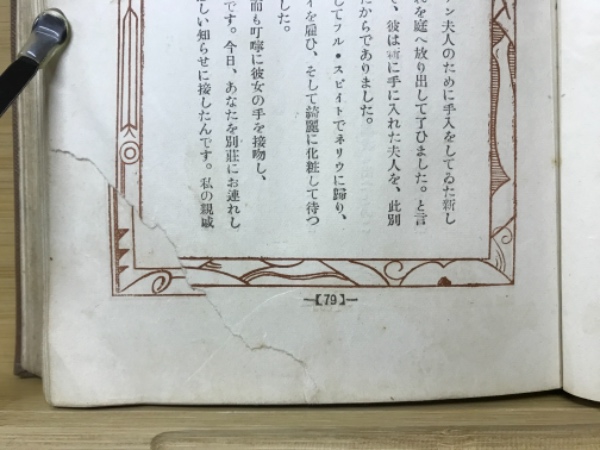 ン夫人のために手入をしてゐた新し
れを庭へ放り出して了ひました。と言
、彼は新に手に入れた夫人を、此別
たからでありました。
してフル・スピイトでネリウに歸り、
イを雇ひ、そして綺麗に化粧して待つ
した。
而も叮嚀に彼女の手を接吻し、
です。今日、あなたを別莊にお連れし
しい知らせに接したんです。私の親戚
【79】